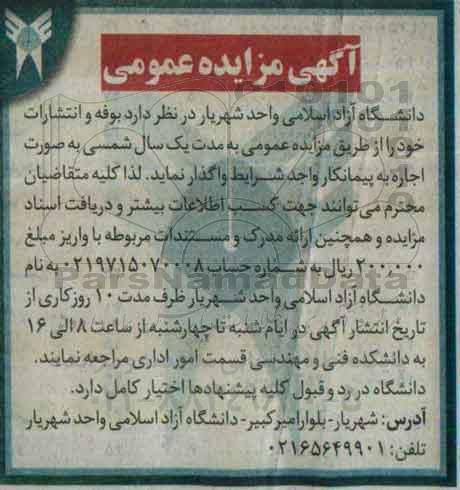 آگهی مزایده عمومی
دانشگاه آزاد اسلامی واحد شهریار در نظر دارد بوفه و انتشارات
خود را از طریق مزایده عمومی به مدت یک سال شمسی به صورت
اجاره به پیمانکار واجد شرایط واگذار نماید. لذا کلیه متقاضیان
محترم می توانند جهت کسب اطلاعات بیشتر و دریافت اسناد
مزایده و همچنین ارائه مدرک و مستندات مربوطه با واریز مبلغ
۲۰۰,۰۰۰ ریال به شماره حساب ۰۲۱۹۷۱۵۰۷۰۰۰۸ به نام
ParsNamadData
دانشگاه آزاد اسلامی واحد شهریار ظرف مدت ۱۰ روز کاری از
تاریخ انتشار آگهی در ایام شنبه تا چهارشنبه از ساعت ۸ الی ۱۶
به دانشکده فنی و مهندسی قسمت امور اداری مراجعه نمایند.
دانشگاه در رد و قبول کلیه پیشنهادها اختیار کامل دارد.
آدرس: شهریار- بلوار امیرکبیر- دانشگاه آزاد اسلامی واحد شهریار
تلفن: ۰۲۱۶۵۶۴۹۹۰۱